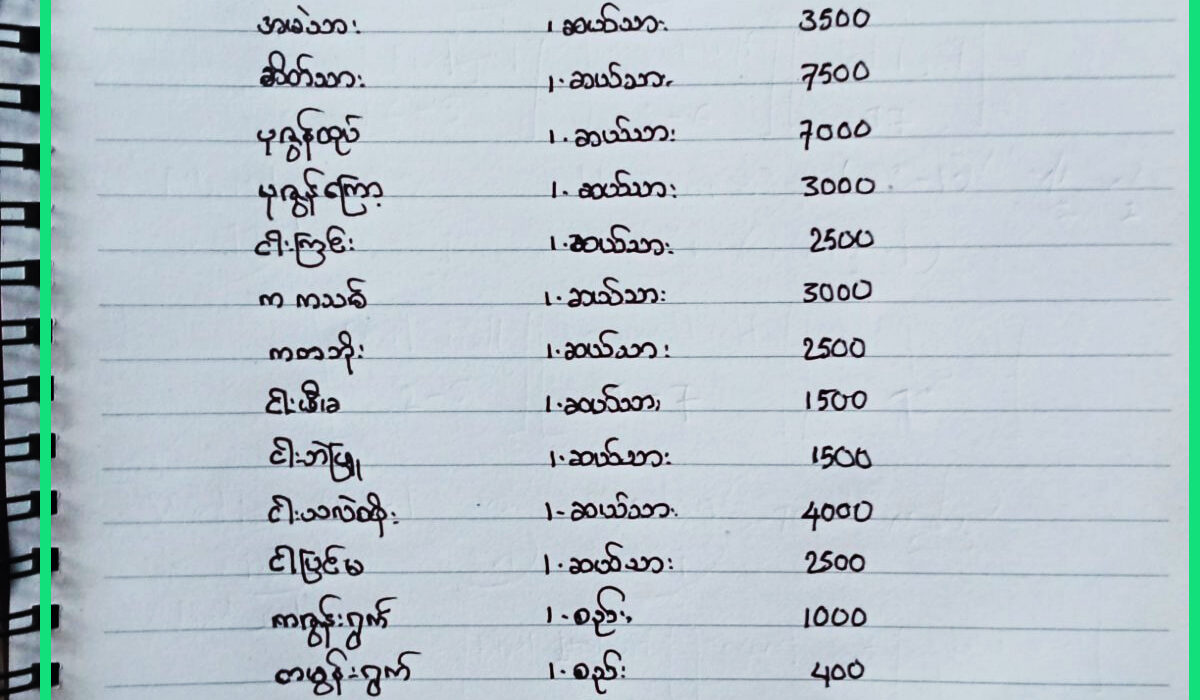 အမဲသား 1.ဆယ်သား 3500
ဆိတ်သား 1.ဆယ်သား 7500
ပုဇွန်ထုပ် 1.ဆယ်သား 7000
ပုဇွန်ကြော့ 1.ဆယ်သား 3000
ငါးကြင်း 1.ဆယ်သား 2500
က ကသစ် 1.ဆယ်သား 3000
ကတဘိုး 1.ဆယ်သား 2500
1.ဆယ်သား 1500
ငါးဘဲဖြူ 1.ဆယ်သား 1500
ငါးသလဲထိုး 1-ဆယ်သား 4000
ငါပြင်မ 1.ဆယ်သား 2500
ကဇွန်းရွက် 1-စည်း 1000
1.စည်း 400